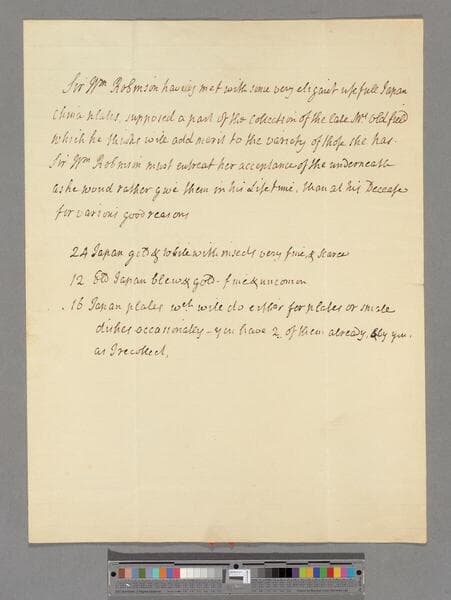 Sir Wm Robinson having met with some very elegant usefull Japan
China plates, supposed a part of the Collection of the late Mrs Oldfield
which he thinks will add merit to the variety of those she has.
Sir Wm Robinson must entreat her acceptance of the underneath
as he woud rather give them in his Lifetime, than at his Decease
for various good reasons
24 Japan gold & white with insects very fine, & scarce
12 Old Japan blew & gold - fine & uncomon
16 Japan plates wch will do either for plates or single
dishes occasionally - you have 2 of them already, by you.
as I recollect.